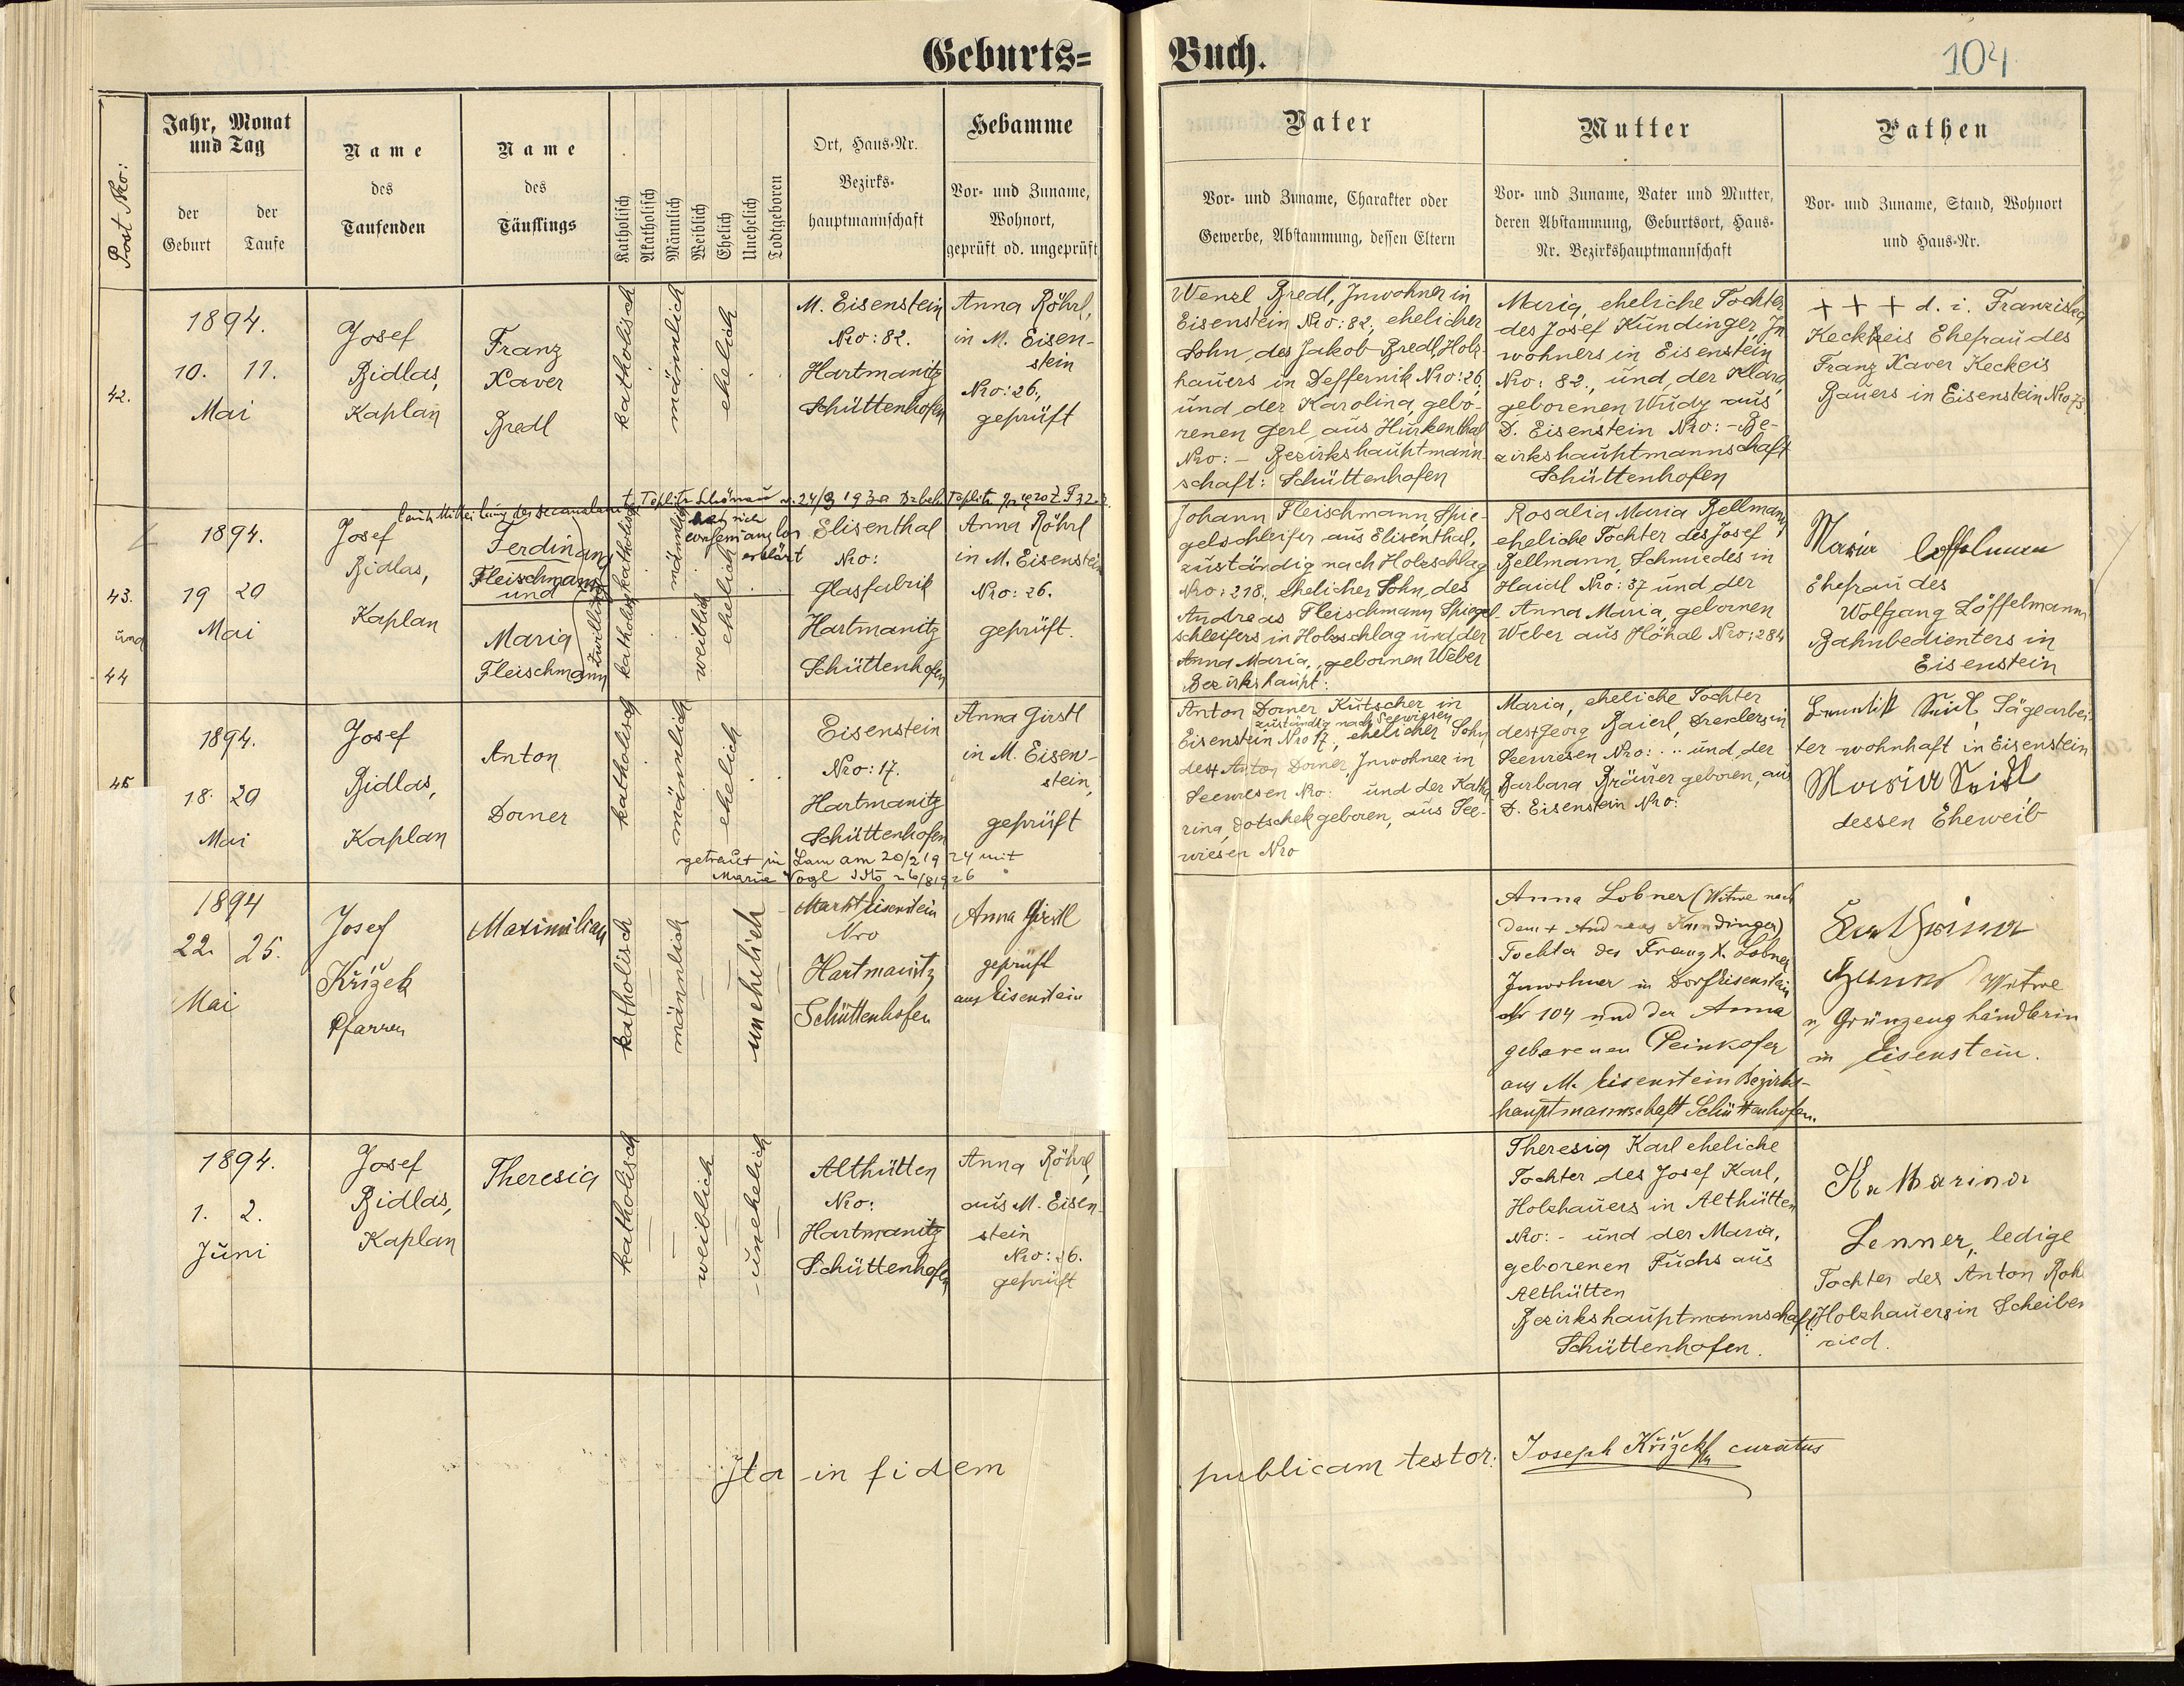 Geburts=
Buch.
104
Post Nro:
Jahr, Monat
und Tag
der
Geburt
der
Taufe
Name
des
Taufenden
Name
des
Täuflings
Katholisch
Akatholisch
Männlich
Weiblich
Ehelich
Unehelich
Todtgeboren
Ort, Haus-Nr.
Bezirks-
hauptmannschaft
Hebamme
Vor- und Zuname,
Wohnort,
geprüft od. ungeprüft
Vater
Vor- und Zuname, Charakter oder
Gewerbe, Abstammung, dessen Eltern
Mutter
Vor- und Zuname, Vater und Mutter,
deren Abstammung, Geburtsort, Haus-
Nr. Bezirkshauptmannschaft
Pathen
Vor- und Zuname, Stand, Wohnort
und Haus-Nr.
42.
1894.
10. 11.
Mai
Josef
Bidlas,
Kaplan
Franz
Xaver
Bredl
katholisch
männlich
ehelich
M. Eisenstein
Nro: 82.
Hartmanitz
Schüttenhofen
Anna Röhrl,
in M. Eisen-
stein
Nro: 26,
geprüft
Wenzl Bredl, Inwohner in
Eisenstein Nro: 82, ehelicher
Sohn, des Jakob Bredl, Holz-
hauers in Deffernik Nro: 26,
und der Karolina, gebo-
renen Gerl, aus Hurkenthal
Nro: – Bezirkshauptmann-
schaft: Schüttenhofen
Maria, eheliche Tochter
des Josef Kundinger, In-
wohners in Eisenstein
Nro: 82, und der Klara,
geborenen Wudy aus
D. Eisenstein Nro: – Be-
zirkshauptmannschaft
Schüttenhofen
+ + + d. i. Franziska
Keckeis Ehefrau des
Franz Xaver Keckeis
Bauers in Eisenstein Nro 75
laut Mitteilung des
Teplitz Schönau v. 24/3 193
Teplitz
hat sich
konfessionslos
erklärt
43.
und
44
1894.
19 20
Mai
Josef
Bidlas,
Kaplan
Ferdinand
Fleischmann
und
Maria
Fleischmann
Zwillinge
katholisch
männlich
ehelich
katholisch
weiblich
ehelich
Elisenthal
Nro:
Glasfabrik
Hartmanitz
Schüttenhofen
Anna Röhrl
in M. Eisenstein
Nro: 26.
geprüft.
Johann Fleischmann, Spie-
gelschleifer aus Elisenthal,
zuständig nach Holzschlag
Nro: 218, ehelicher Sohn, des
Andreas Fleischmann Spiegel-
schleifers in Holzschlag und der
Anna Maria, gebornen Weber
Bezirkshaupt:
Rosalia Maria Bellmann,
eheliche Tochter des Josef
Bellmann, Schmiedes in
Haidl Nro: 37 und der
Anna Maria, gebornen
Weber aus Höhal Nro: 284
Maria Löffelmann
Ehefrau des
Wolfgang Löffelmann
Bahnbedienters in
Eisenstein
45
1894.
18. 20
Mai
Josef
Bidlas,
Kaplan
Anton
Dorner
katholisch
männlich
ehelich
Eisenstein
Nro: 17.
Hartmanitz
Schüttenhofen
Anna Girstl
in M. Eisen-
stein,
geprüft
getraut in Lam am 20/2 1924 mit
Maria Vogl 26/8 1926
Anton Dorner Kutscher in
zuständig nach Seewiesen
Eisenstein Nro 17, ehelicher Sohn
des + Anton Dorner, Inwohner in
Seewiesen Nro: und der Katha-
rina, Dotschek geboren, aus See-
wiesen Nro
Maria, eheliche Tochter
des + Georg Baierl, Drexlers in
Seewiesen Nro: .. und der
Barbara Bräuer geboren, aus
D. Eisenstein Nro:
Sägearbei-
ter wohnhaft in Eisenstein
Maria
dessen Eheweib
1894
22. 25.
Mai
Josef
Křížek
Pfarrer
Maximilian
katholisch
männlich
unehelich
Markt Eisenstein
Nro
Hartmanitz
Schüttenhofen
Anna Girstl
geprüft
aus Eisenstein
Anna Lobner (Witwe nach
dem + Andreas Kundinger)
Tochter des Franz X. Lobner
Inwohner in Dorf Eisenstein
Nr 104 und der Anna
geborenen Peinkofer
aus M. Eisenstein Bezirks-
hauptmannschaft Schüttenhofen.
Katharina
Witwe
u. Grünzeughändlerin
in Eisenstein.
1894.
1. 2.
Juni
Josef
Bidlas,
Kaplan
Theresia
katholisch
weiblich
unehelich
Althütten
Nro:
Hartmanitz
Schüttenhofen
Anna Röhrl,
aus M. Eisen-
stein
Nro: 26.
geprüft
Theresia Karl eheliche
Tochter des Josef Karl,
Holzhauers in Althütten
Nro: - und der Maria,
geborenen Fuchs aus
Althütten
Bezirkshauptmannschaft
Schüttenhofen.
Katharina
Lenner, ledige
Tochter des Anton
Holzhauers in Scheiben
ried.
Ita in fidem
publicam testor: Joseph Křížek curatus